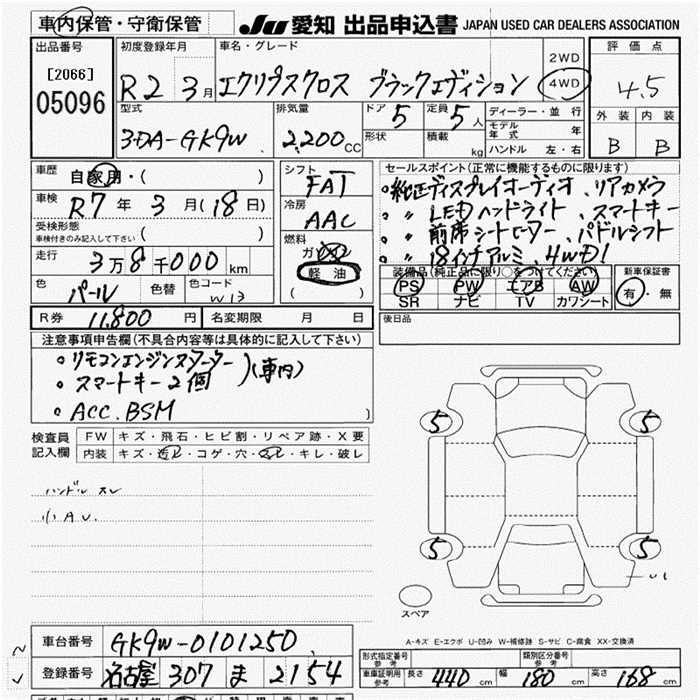 車内保管・守衛保管 JU 愛知 出品申込書 JAPAN USED CAR DEALERS ASSOCIATION
出品番号 初度登録年月 車名・グレード 2WD 評価点
[2066] R2 3月 エクリプスクロス ブラックエディション 4WD 4.5
05096 型式 排気量 ドア 5 定員 5人 ディーラー・並行 外装 内装
3DA-GK9W 2,200cc 形状 積載 kg モデル年式 年 B B
ハンドル 左・右
車歴 自家用・( ) シフト FAT セールスポイント(正常に機能するものに限ります)
車検 R7年 3月(18日) 冷房 AAC ・純正ディスプレイオーディオ、リアカメラ
受検形態 ・〃 LEDヘッドライト、スマートキー
車検付きのみ記入して下さい ( ) 燃料 ・〃 前席シートヒーター、パドルシフト
走行 3万8千000km ガソリン ・〃 18インチアルミ、4WD!
軽油 装備品(純正品に限り○をつけてください) 新車保証書
色 パール 色替 色コード W13 ( ) PS PW エアB AW 有・無
SR ナビ TV カワシート
R券 11,800円 名変期限 月 日 後日品
注意事項申告欄(不具合内容等は具体的に記入して下さい)
・リモコンエンジンスターター
・スマートキー2個 )(車内)
・ACC.BSM )
検査員 FW キズ・飛石・ヒビ割・リペア跡・X要
記入欄 内装 キズ・汚れ・コゲ・穴・スレ・キレ・破レ
ハンドル スレ
小A U.
5 5
5 5
スペア
A-キズ E-エクボ U-凹み W-補修跡 S-サビ C-腐食 XX-交換済
車台番号 GK9W-0101250 形式指定番号 参考 類別区分番号 参考
登録番号 名古屋 307 ま 2154 車庫証明用 参考 長さ 440cm 幅 180cm 高さ 168cm